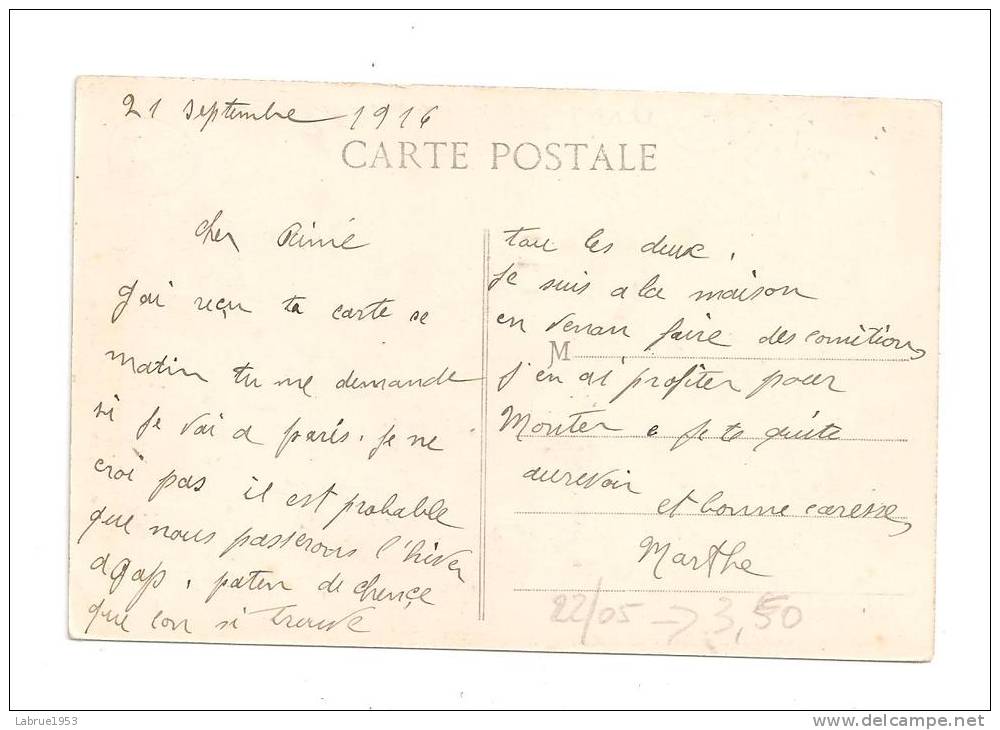 21 septembre 1916
CARTE POSTALE
cher Aimé
J'ai reçu ta carte ce
matin tu me demande
si je vai a paris. je ne
croi pas il est probable
que nous passerons l'hiver
a Gap. paten de chence
que con si trouve
tou les deux.
je suis a la maison
en venan faire des comitions
M
j'en ai profiter pour
Monter e je te quite
aurevoir
et bonne caresse,
Marthe
22/05 → 3,50
Labrue1953
delcampe.net